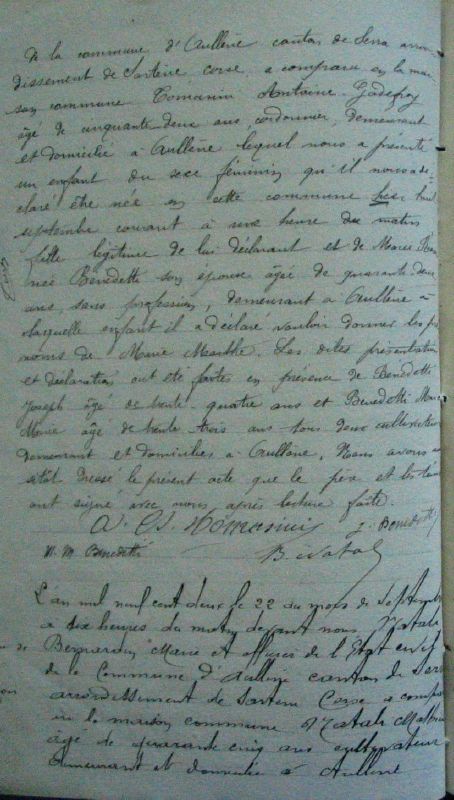 de la commune d'Aullène canton de Serra arron
dissement de Sartène corse a comparu en la mai
son commune Tomasini Antoine Godefroy
âgé de cinquante deux ans, cordonnier, demeurant
et domicilié à Aullène lequel nous a présenté
un enfant du sexe féminin qu'il nous a dé
claré être née en cette commune hier huit
septembre courant à une heure du matin
fille légitime de lui déclarant et de Marie
Benedetti son épouse âgée de quarante deux
ans, sans profession, demeurant à Aullène à
laquelle enfant il a déclaré vouloir donner les pré
noms de Marie Marthe. Les dites présentation
et déclaration ont été faites en présence de Benedetti
Joseph âgé de trente quatre ans et Benedetti
Marie âgé de trente trois ans tous deux cultivateurs
demeurant et domiciliés à Aullène. Nous avons
dressé le présent acte que le père et les témoins
ont signé avec nous après lecture faite.
Tomasini J. Benedetti
Benedetti B. Natali
L'an mil neuf cent deux le 22 du mois de Septembre
à dix heures du matin devant nous Natali
Bernardin Marie et officier de l'Etat civil
de la Commune d'Aullène canton de Serra
arrondissement de Sartène Corse a comparu
en la maison commune Natali
âgé de quarante cinq ans cultivateur
demeurant et domicilié à Aullène